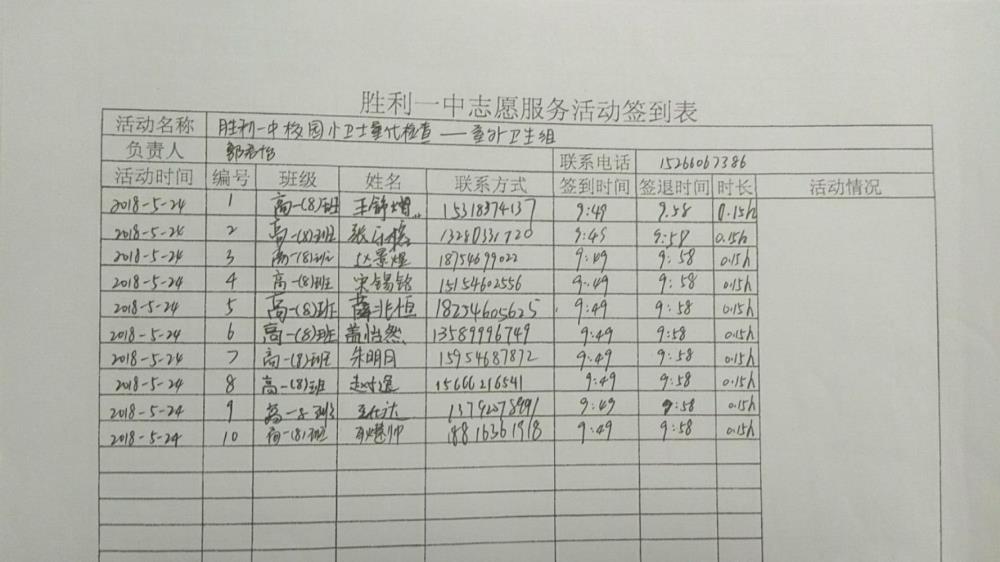 胜利一中志愿服务活动签到表
活动名称 胜利一中校园小卫士量化检查——室外卫生组
负责人 联系电话 15266067386
活动时间 编号 班级 姓名 联系方式 签到时间 签退时间 时长 活动情况
2018-5-24 1 高一(8)班 王舒增 15318374137 9:49 9:58 0.15h
2018-5-24 2 高一(8)班 13280331720 9:49 9:58 0.15h
2018-5-24 3 高一(8)班 赵景煜 18754699022 9:49 9:58 0.15h
2018-5-24 4 高一(8)班 宋锡铭 15154602556 9:49 9:58 0.15h
2018-5-24 5 高一(8)班 薛兆恒 18254605625 9:49 9:58 0.15h
2018-5-24 6 高一(8)班 盖怡然 13589996749 9:49 9:58 0.15h
2018-5-24 7 高一(8)班 朱明月 15954687872 9:49 9:58 0.15h
2018-5-24 8 高一(8)班 15666216541 9:49 9:58 0.15h
2018-5-24 9 高一8班 王仕达 9:49 9:58 0.15h
2018-5-24 10 高一(8)班 9:49 9:58 0.15h